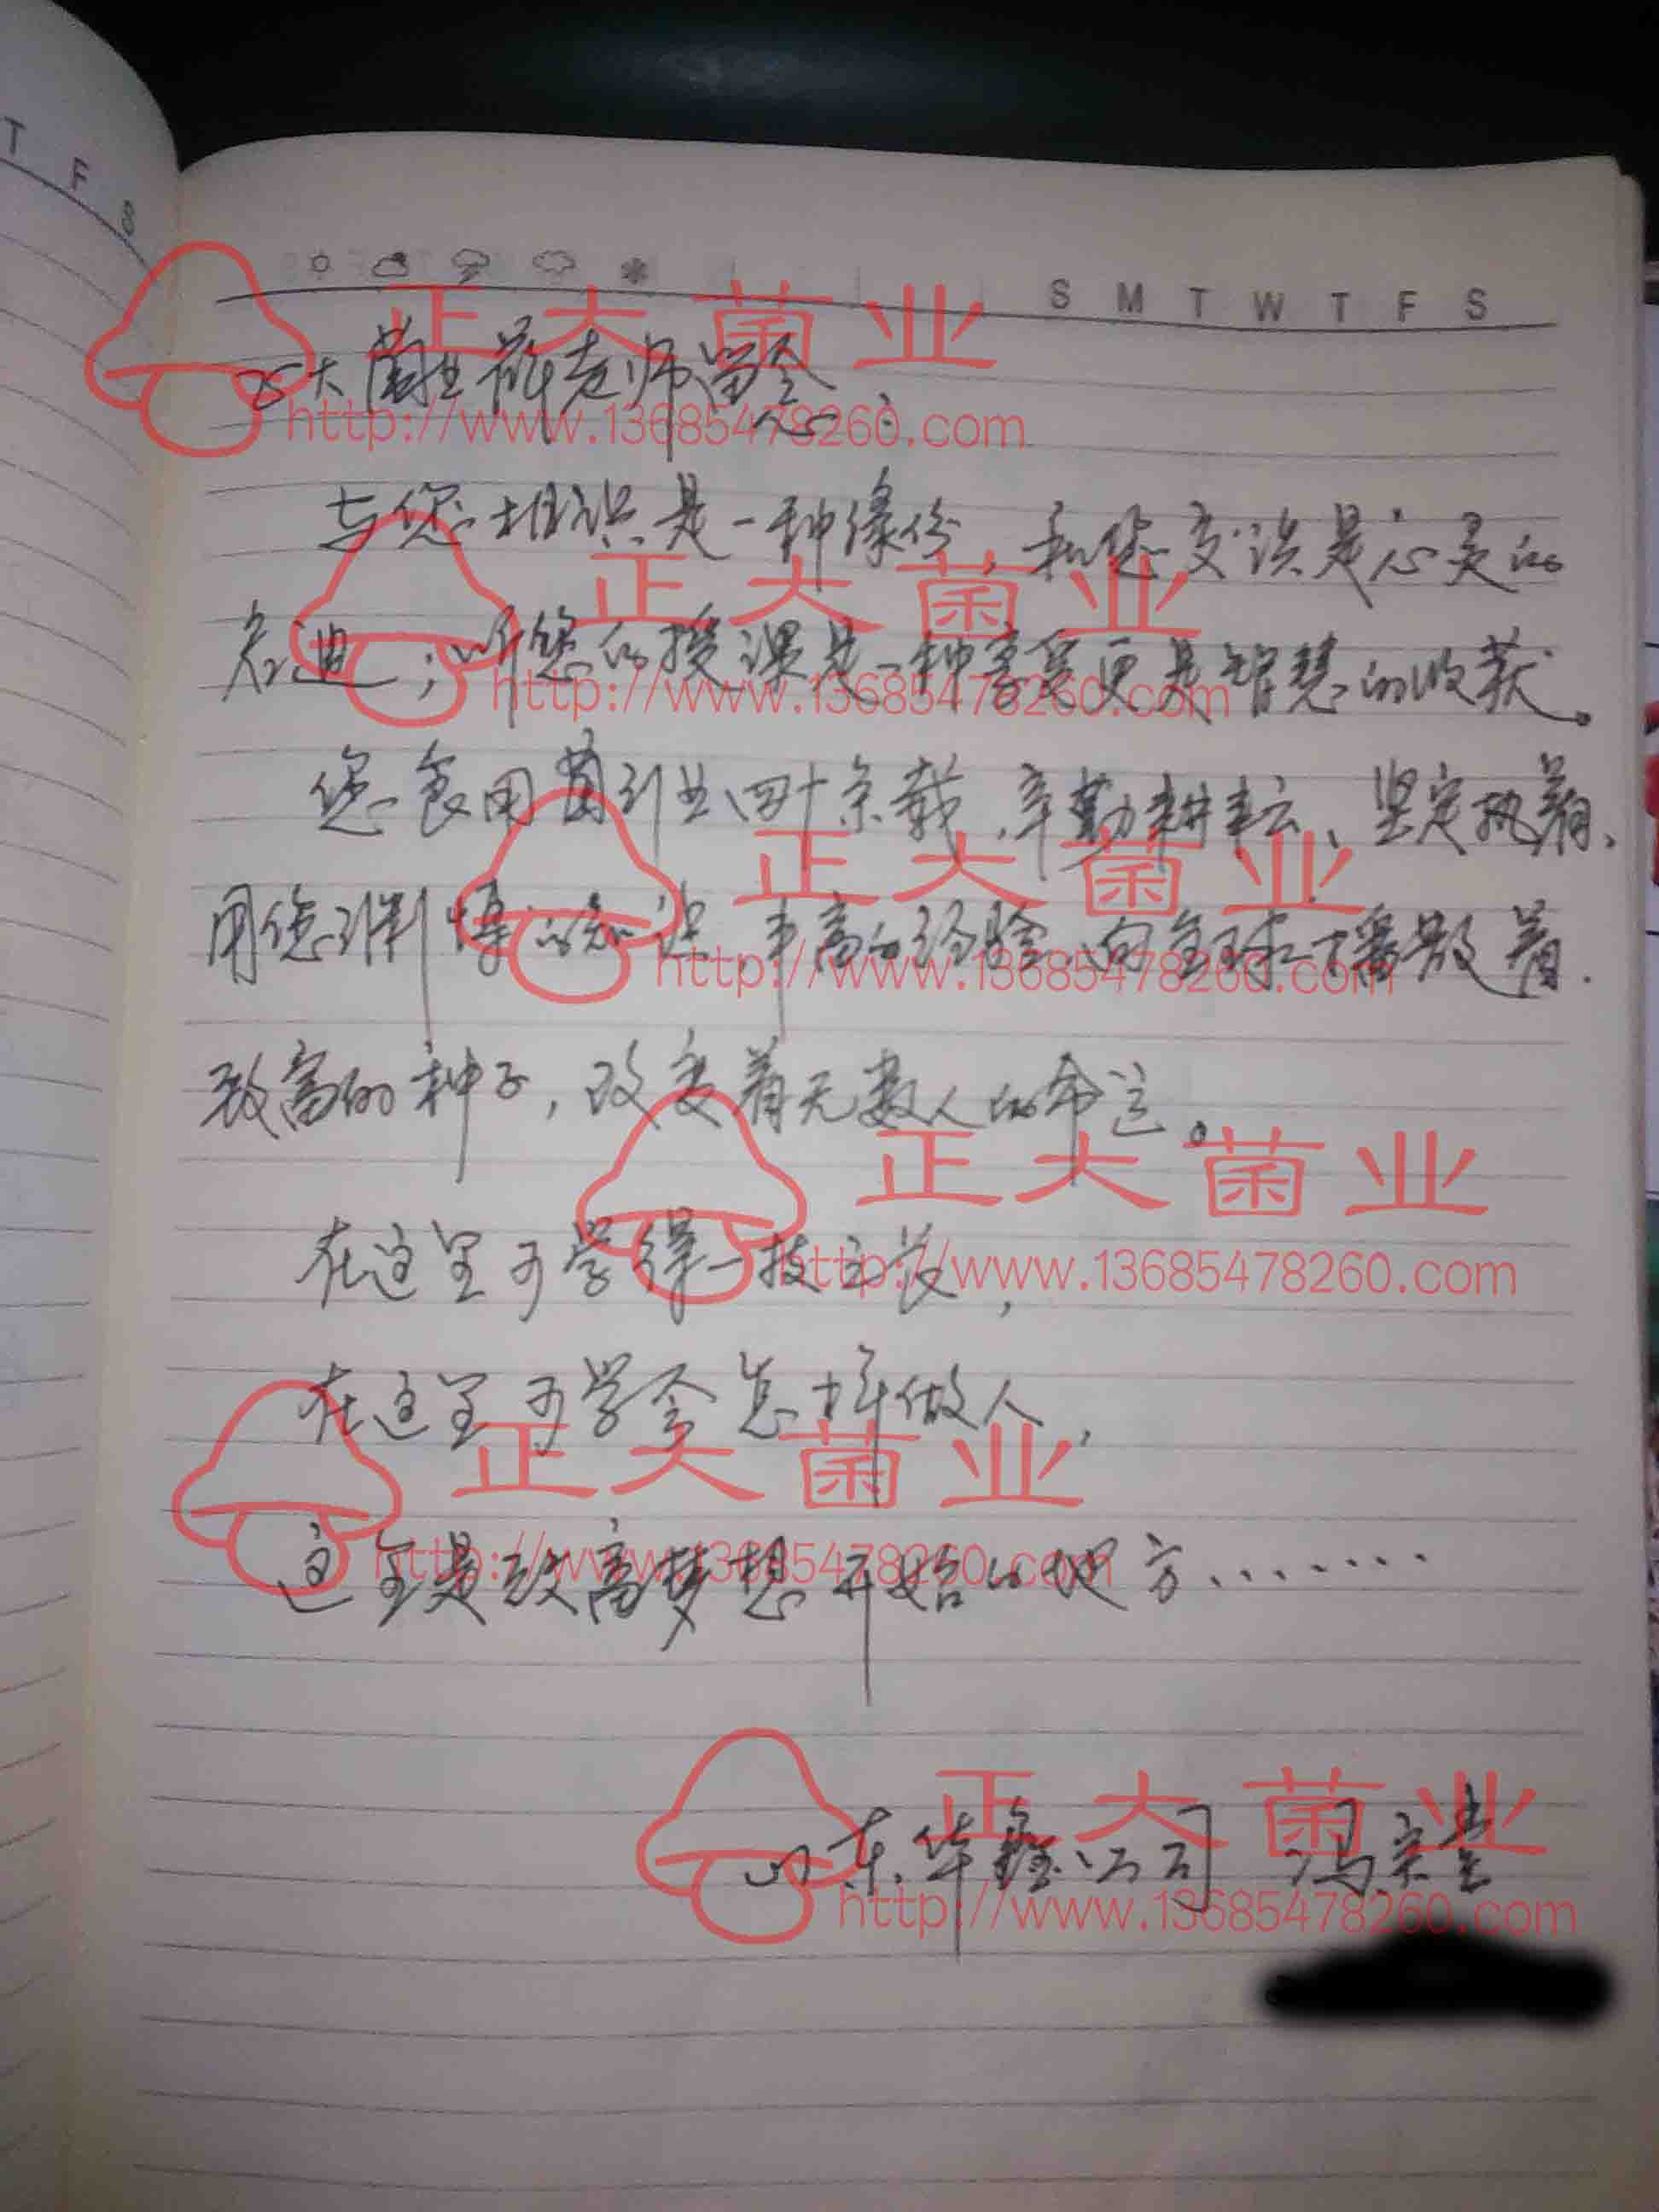 T F S
S M T W T F S
正大菌业
http://www.13685478260.com
正大菌业蒋老师留念:
与您相识是一种缘份,和您交谈是心灵的
正大菌业
启迪;听您的授课是一种享受更是智慧的收获。
http://www.13685478260.com
您食用菌行业四十余载,辛勤耕耘、坚定执着,
正大菌业
用您渊博的知识,丰富的经验,向全球播散着
http://www.13685478260.com
致富的种子,改变着无数人的命运。
正大菌业
在这里可学得一技之长,
http://www.13685478260.com
在这里可学会怎样做人,
正大菌业
这里是致富梦想开始的地方.......
http://www.13685478260.com
正大菌业
山东华鑫公司 冯宗
http://www.13685478260.com